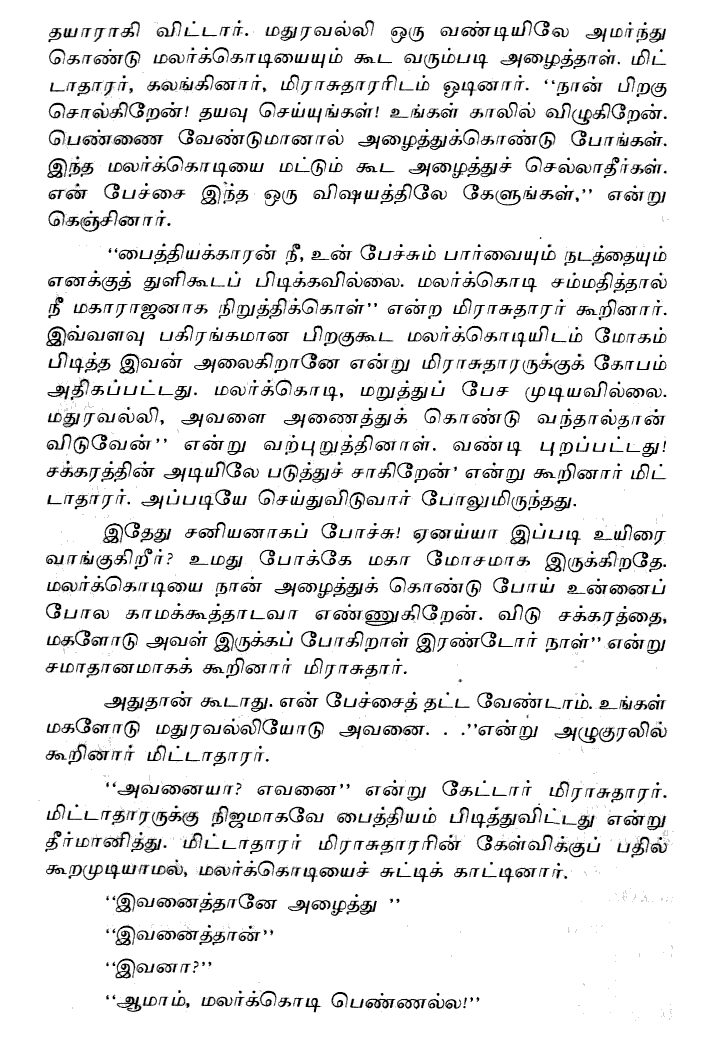 தயாராகி விட்டார். மதுரவல்லி ஒரு வண்டியிலே அமர்ந்து
கொண்டு மலர்க்கொடியையும் கூட வரும்படி அழைத்தாள். மிட்
டாதாரர், கலங்கினார், மிராசுதாரரிடம் ஓடினார். ‘‘நான் பிறகு
சொல்கிறேன்! தயவு செய்யுங்கள்! உங்கள் காலில் விழுகிறேன்.
பெண்ணை வேண்டுமானால் அழைத்துக்கொண்டு போங்கள்.
இந்த மலர்க்கொடியை மட்டும் கூட அழைத்துச் செல்லாதீர்கள்.
என் பேச்சை இந்த ஒரு விஷயத்திலே கேளுங்கள்,’’ என்று
கெஞ்சினார்.
‘‘பைத்தியக்காரன் நீ, உன் பேச்சும் பார்வையும் நடத்தையும்
எனக்குத் துளிகூடப் பிடிக்கவில்லை. மலர்க்கொடி சம்மதித்தால்
நீ மகாராஜனாக நிறுத்திக்கொள்’’ என்ற மிராசுதாரர் கூறினார்.
இவ்வளவு பகிரங்கமான பிறகுகூட மலர்க்கொடியிடம் மோகம்
பிடித்த இவன் அலைகிறானே என்று மிராசுதாரருக்குக் கோபம்
அதிகப்பட்டது. மலர்க்கொடி, மறுத்துப் பேச முடியவில்லை.
மதுரவல்லி, அவளை அணைத்துக் கொண்டு வந்தால்தான்
விடுவேன்’’ என்று வற்புறுத்தினாள். வண்டி புறப்பட்டது!
சக்கரத்தின் அடியிலே படுத்துச் சாகிறேன்’ என்று கூறினார் மிட்
டாதாரர். அப்படியே செய்துவிடுவார் போலுமிருந்தது.
இதேது சனியனாகப் போச்சு! ஏனய்யா இப்படி உயிரை
வாங்குகிறீர்? உமது போக்கே மகா மோசமாக இருக்கிறதே.
மலர்க்கொடியை நான் அழைத்துக் கொண்டு போய் உன்னைப்
போல காமக்கூத்தாடவா எண்ணுகிறேன். விடு சக்கரத்தை,
மகளோடு அவள் இருக்கப் போகிறாள் இரண்டோர் நாள்’’ என்று
சமாதானமாகக் கூறினார் மிராசுதார்.
அதுதான் கூடாது. என் பேச்சைத் தட்ட வேண்டாம். உங்கள்
மகளோடு மதுரவல்லியோடு அவனை. . .’’என்று அழுகுரலில்
கூறினார் மிட்டாதாரர்.
‘‘அவனையா? எவனை’’ என்று கேட்டார் மிராசுதாரர்.
மிட்டாதாரருக்கு நிஜமாகவே பைத்தியம் பிடித்துவிட்டது என்று
தீர்மானித்து. மிட்டாதாரர் மிராசுதாரரின் கேள்விக்குப் பதில்
கூறமுடியாமல், மலர்க்கொடியைச் சுட்டிக் காட்டினார்.
‘‘இவனைத்தானே அழைத்து ’’
‘‘இவனைத்தான்’’
‘‘இவனா?’’
‘‘ஆமாம், மலர்க்கொடி பெண்ணல்ல!’’